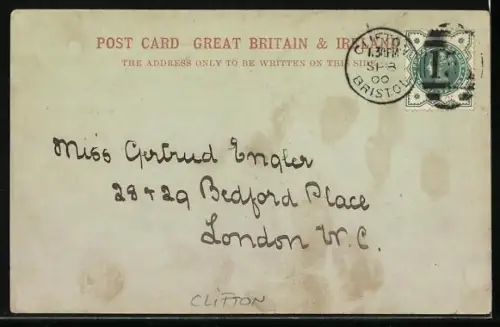 POST CARD GREAT BRITAIN & IRELAND
THE ADDRESS ONLY TO BE WRITTEN ON THIS SIDE
CLIFTON
1.30PM
SP 8
00
BRISTOL
1
Miss Gertrud Engler
28 + 29 Bedford Place
London W.C.
CLIFTON